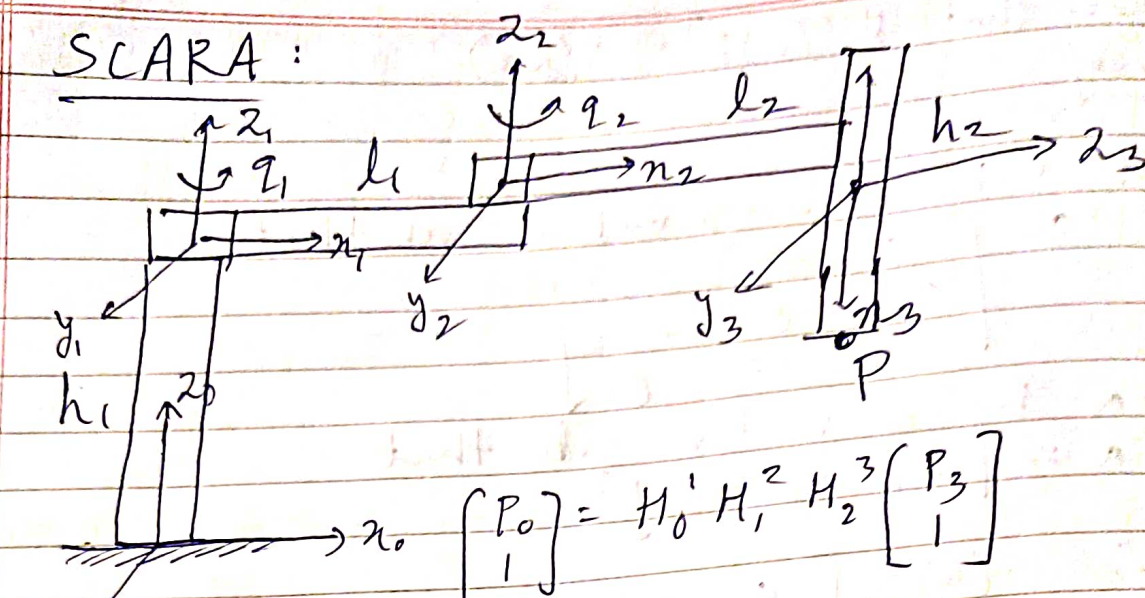 SCARA :
z₂
z₁
q₁
l₁
q₂
l₂
h₂
z₃
x₂
x₁
y₁
y₂
y₃
x₃
P
h₁
z₀
x₀
[P₀ 1] = H₀¹ H₁² H₂³ [P₃ 1]